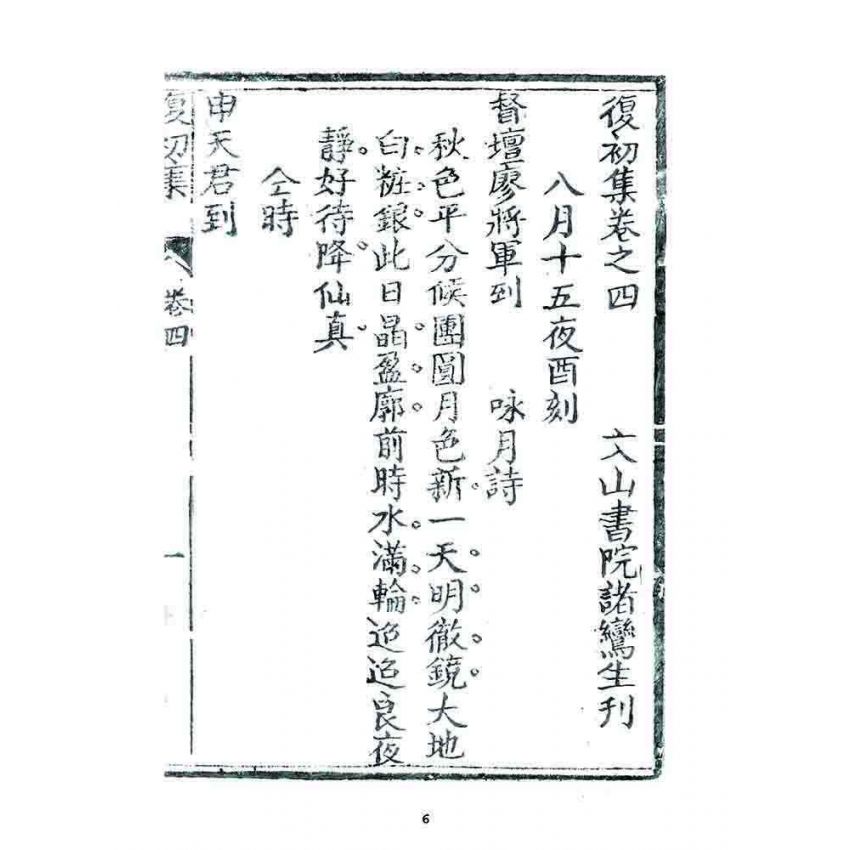 復初集卷之四 文山書院諸鸞生刊
八月十五夜酉刻
督壇廖將軍到 咏月詩
秋色平分候團圓月色新一天明徹鏡大地
白粧銀此日晶盈廓前時水滿輪迢迢良夜
靜好待降仙真
仝時
申天君到
復初集 卷四 一
6